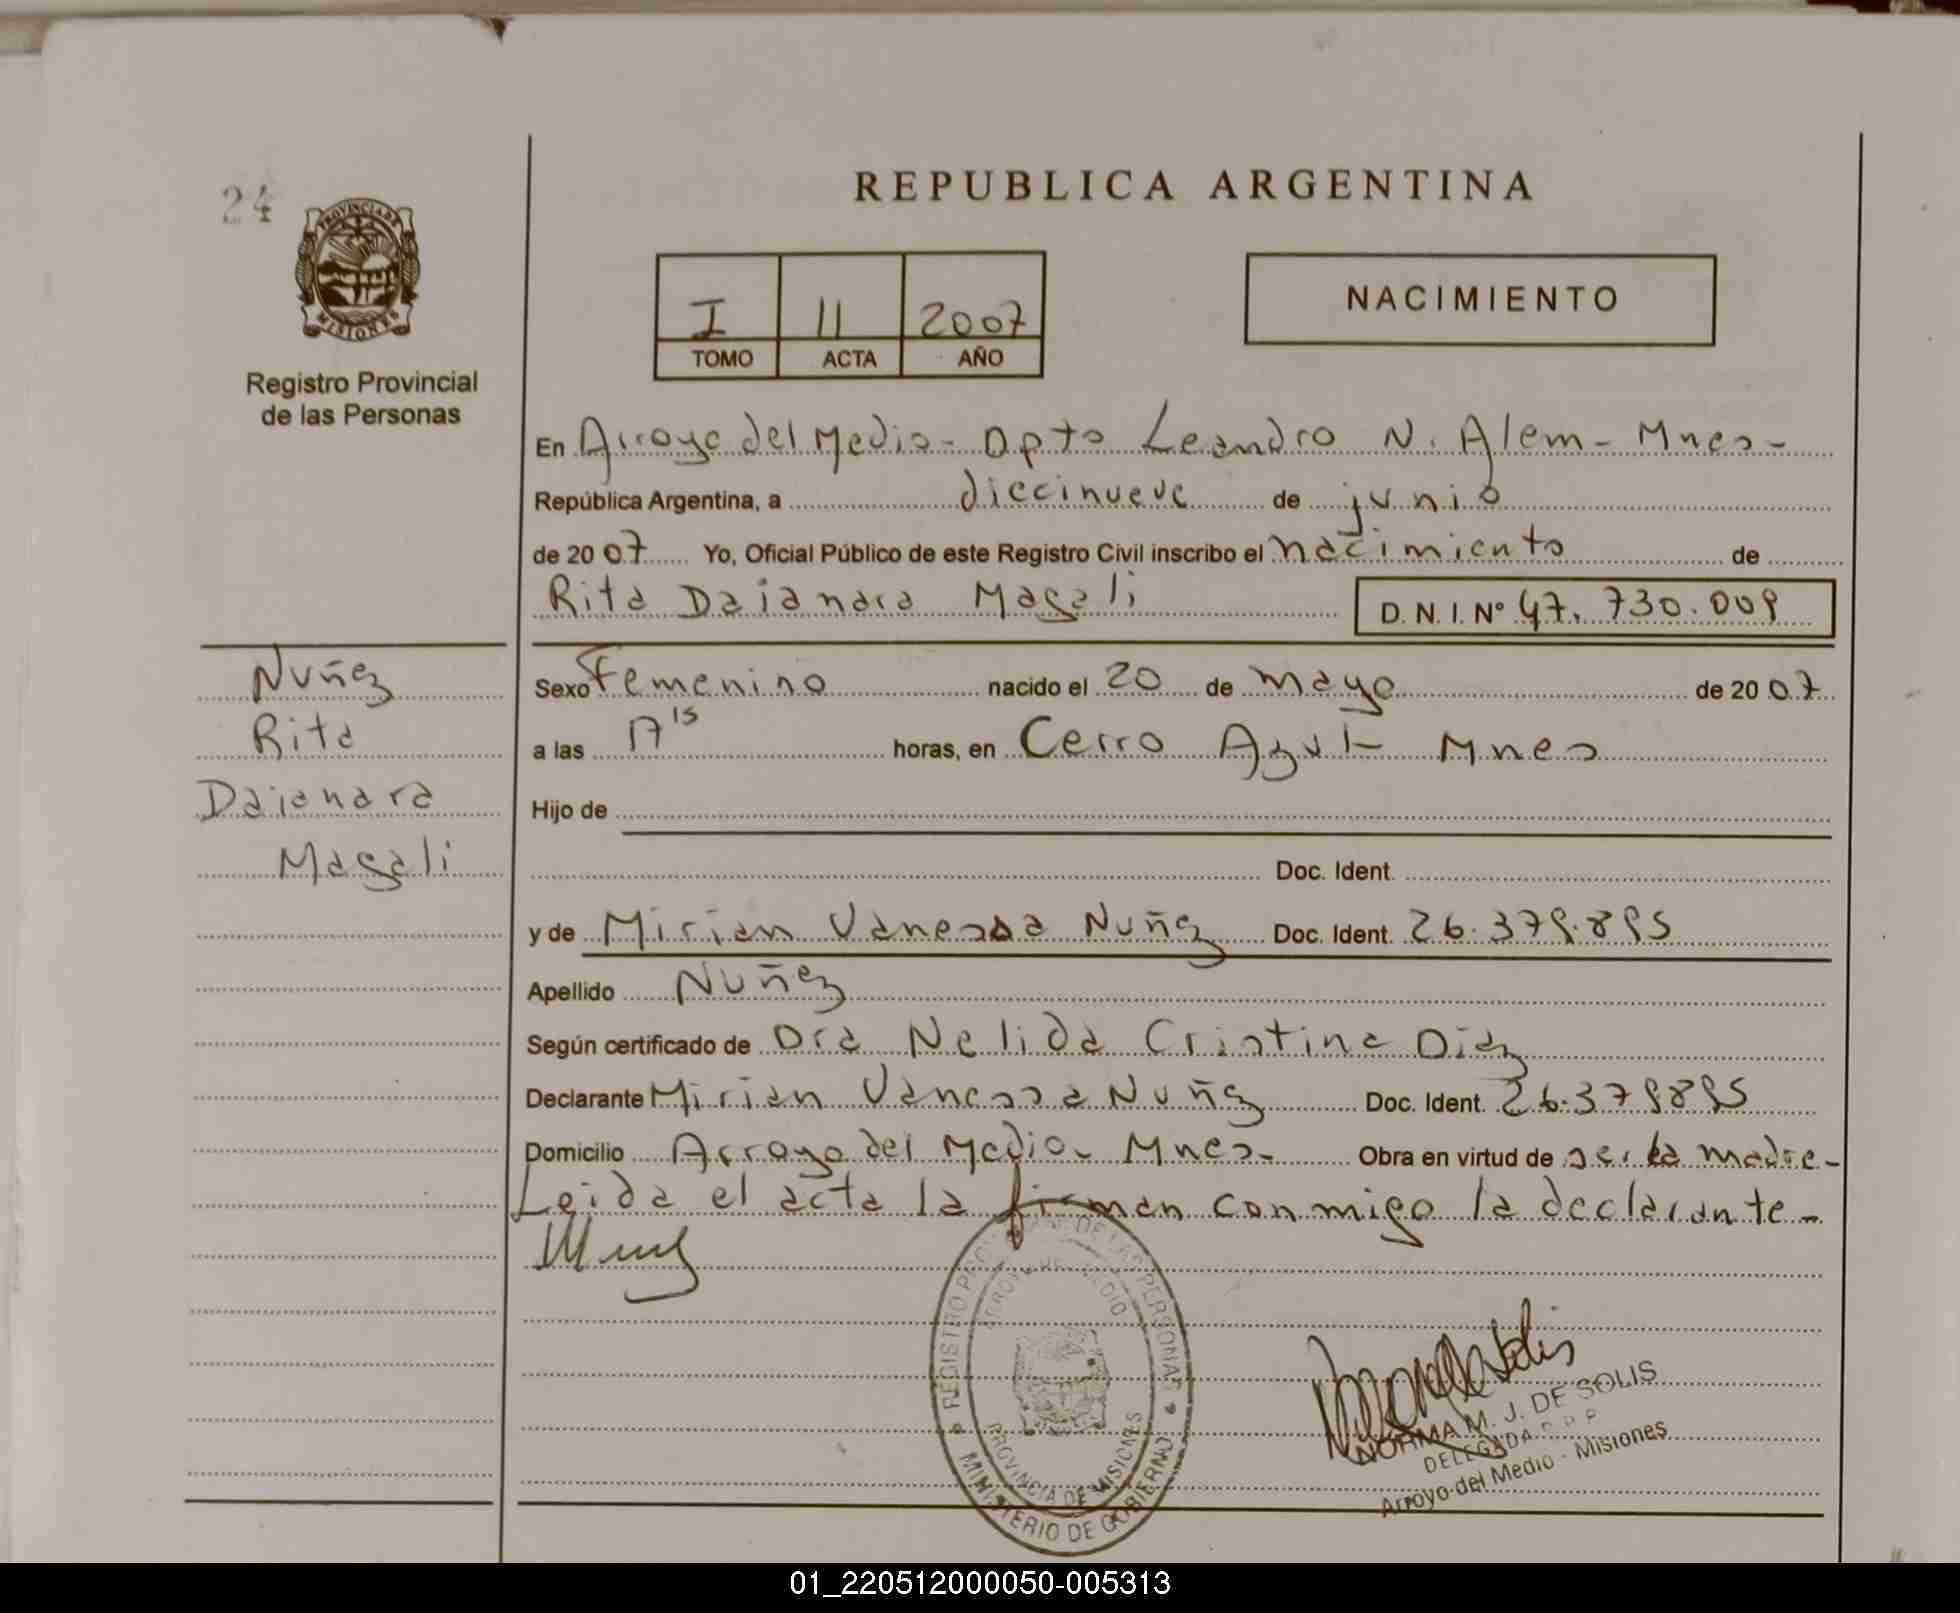 24
PROVINCIA DE
MISIONES
Registro Provincial
de las Personas
REPUBLICA ARGENTINA
I 11 2007
TOMO ACTA AÑO
NACIMIENTO
En Arroyo del Medio - Dpto Leandro N. Alem - Mnes -
República Argentina, a diecinueve de junio
de 2007 Yo, Oficial Público de este Registro Civil inscribo el nacimiento de
Rita Daianara Magali D.N.I. Nº 47.730.009
Nuñez
Rita
Daianara
Magali
Sexo Femenino nacido el 20 de mayo de 2007
a las 17 15 horas, en Cerro Azul - Mnes
Hijo de
Doc. Ident.
y de Mirian Vanessa Nuñez Doc. Ident. 26.379.895
Apellido Nuñez
Según certificado de Dra Nelida Cristina Diaz
Declarante Mirian Vanessa Nuñez Doc. Ident. 26.379895
Domicilio Arroyo del Medio - Mnes - Obra en virtud de ser la madre -
Leida el acta la firman conmigo la declarante -
REGISTRO PROVINCIAL DE LAS PERSONAS
ARROYO DEL MEDIO
PROVINCIA DE MISIONES
MINISTERIO DE GOBIERNO
NORMA M. J. DE SOLIS
DELEGADA R.P.P.
Arroyo del Medio - Misiones
01_220512000050-005313